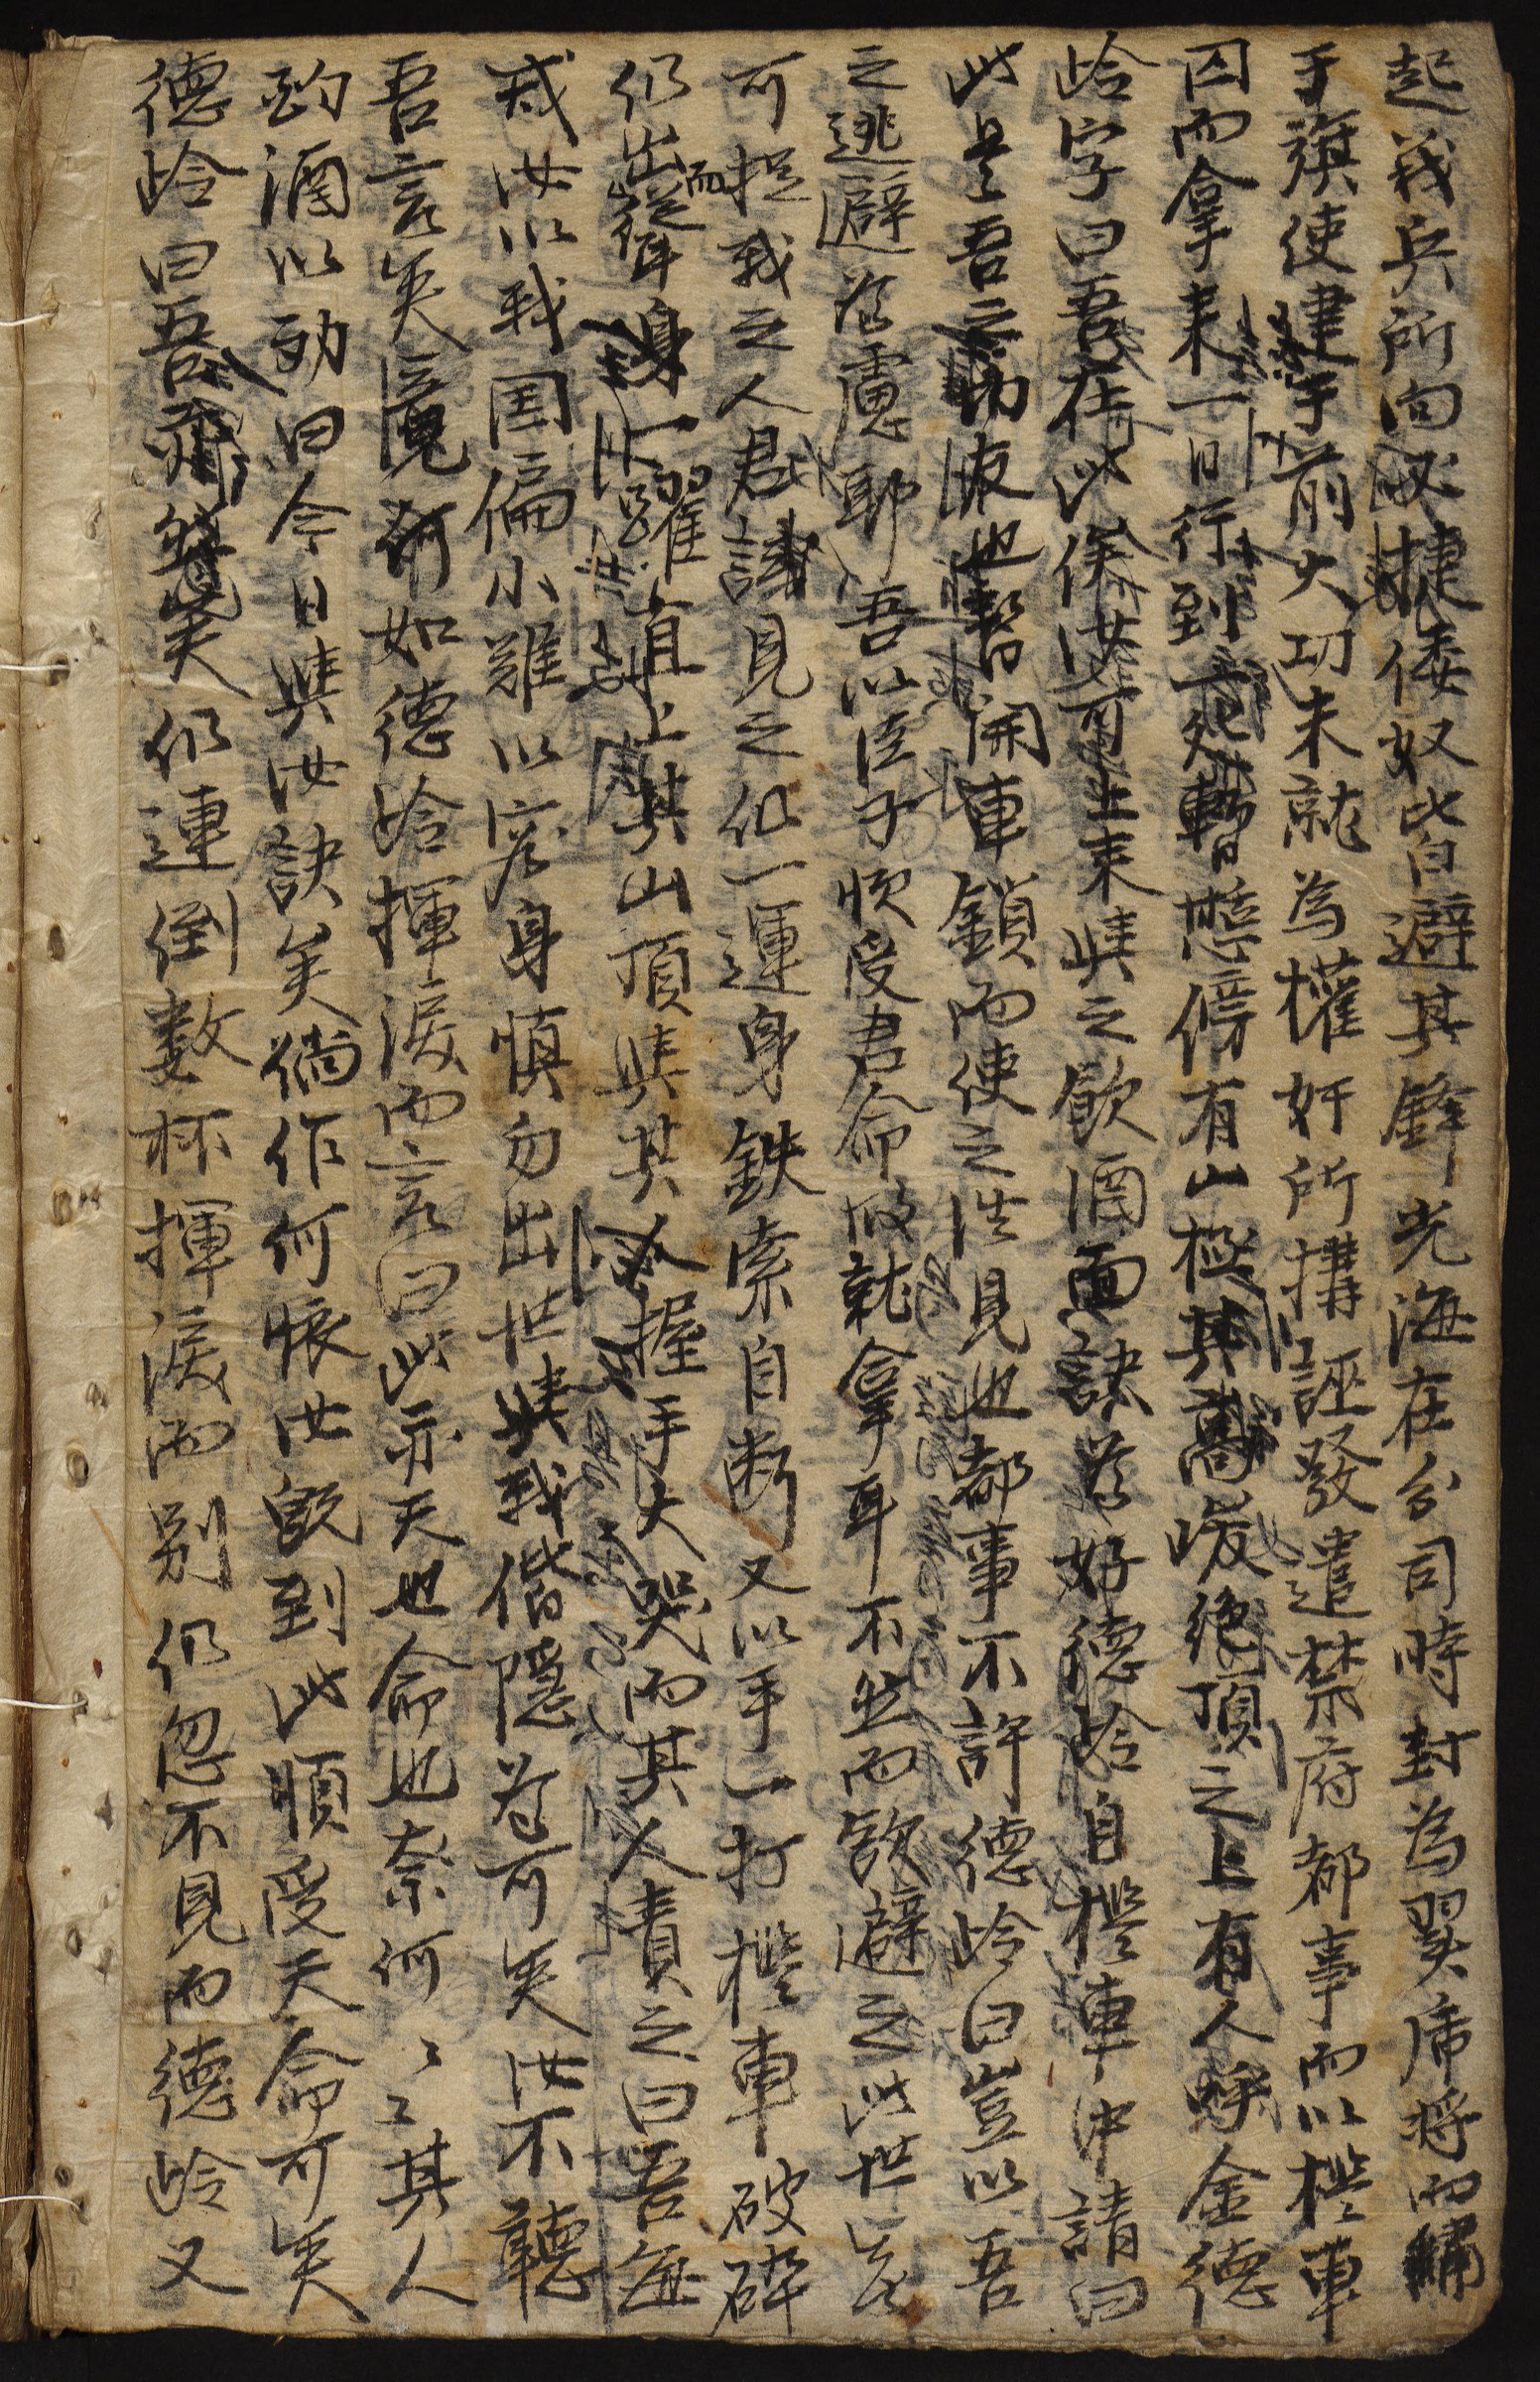 起義兵所向必捷倭奴皆避其鋒光海在分司時封為翼席將而繡
于旗使建于前大功未就為權奸所搆誣發遣禁府都事而以檻車
囚而拿來一日行到一處暫憩傍有山極其高峻絶頂之上有人呼金德
岭字曰吾在此俟汝可上來與之飮酒面訣為好德岭自檻車中請曰
此是吾之切友也暫開車鎖而使之往見也都事不許德岭曰豈以吾
之逃避為慮耶吾以臣子順受君命故就拿耳不然而欲避之此世豈
可捉我之人君試見之仍一運身鉄索自断又以手一打檻車破碎
仍出而聳身一躍直上其山頂與其人握手大哭而其人責之曰吾無
戒汝以我国偏小難以容身慎勿出世與我偕隱為可矣汝不聽
吾言矣竟何如德岭揮淚而言曰此亦天也命也奈何〻〻其人
酌酒以勸曰今日與汝訣矣徜作何恨汝旣到此順受天命可矣
德岭曰吾亦
矣仍連倒数杯揮淚而別仍忽不見而德岭又